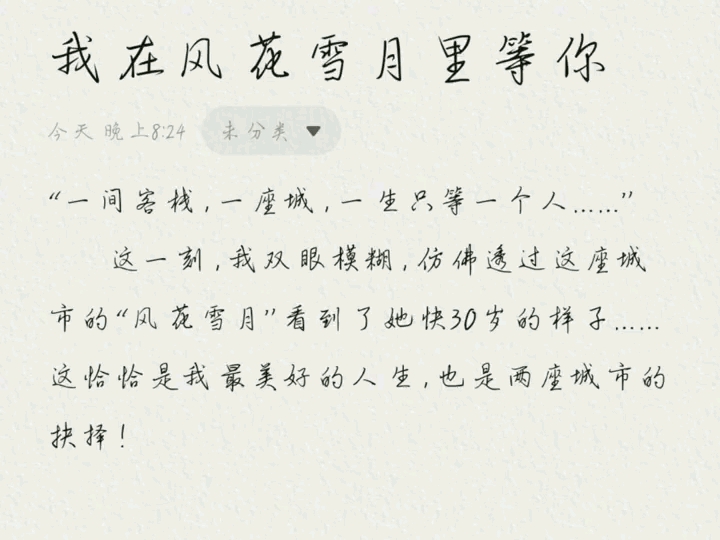 我在风花雪月里等你
今天 晚上8:24 未分类
“一间客栈,一座城,一生只等一个人……”
这一刻,我双眼模糊,仿佛透过这座城
市的“风花雪月”看到了她快30岁的样子……
这恰恰是我最美好的人生,也是两座城市的
抉择!